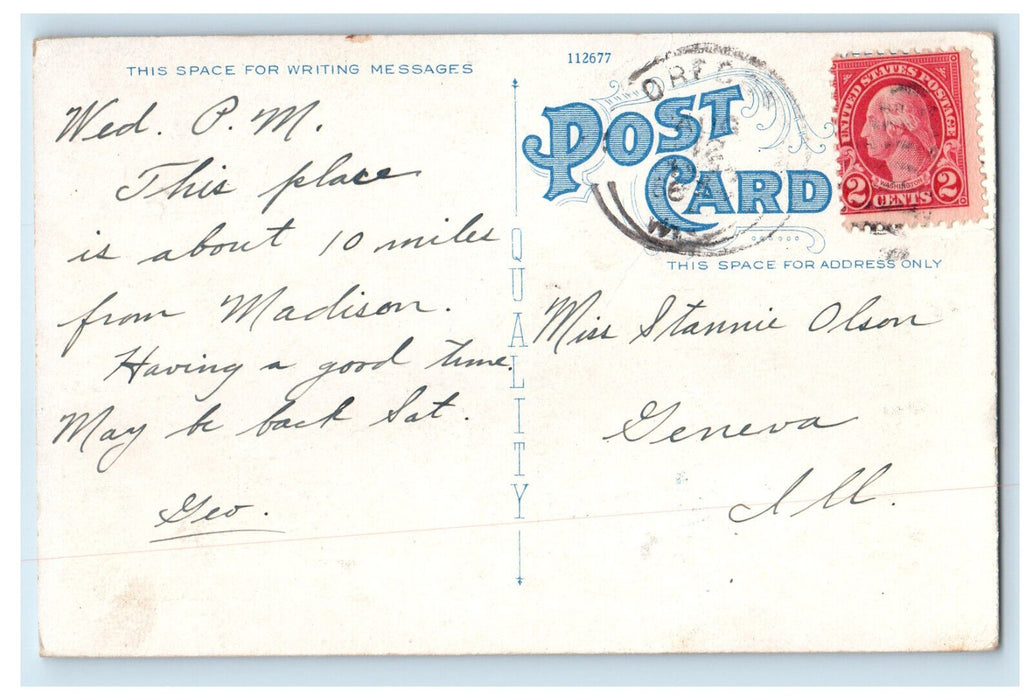 THIS SPACE FOR WRITING MESSAGES
Wed. P. M.
This place
is about 10 miles
from Madison.
Having a good time.
May be back Sat.
Geo.
QUALITY
112677
POST
CARD
UNITED STATES POSTAGE
WASHINGTON
2 CENTS 2
THIS SPACE FOR ADDRESS ONLY
Miss Stannie Olson
Geneva
Ill.